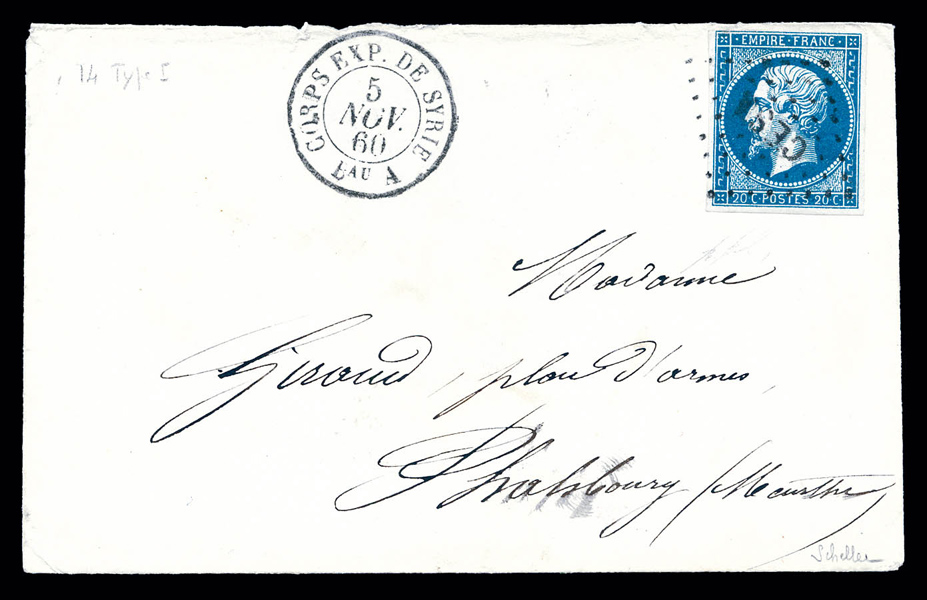 14 Type I
CORPS EXP. DE SYRIE
5
NOV.
60
Bau A
EMPIRE FRANC
20 C POSTES 20 C
Madame
Giraud, place d'armes,
Phalsbourg (Meurthe)
Scheller